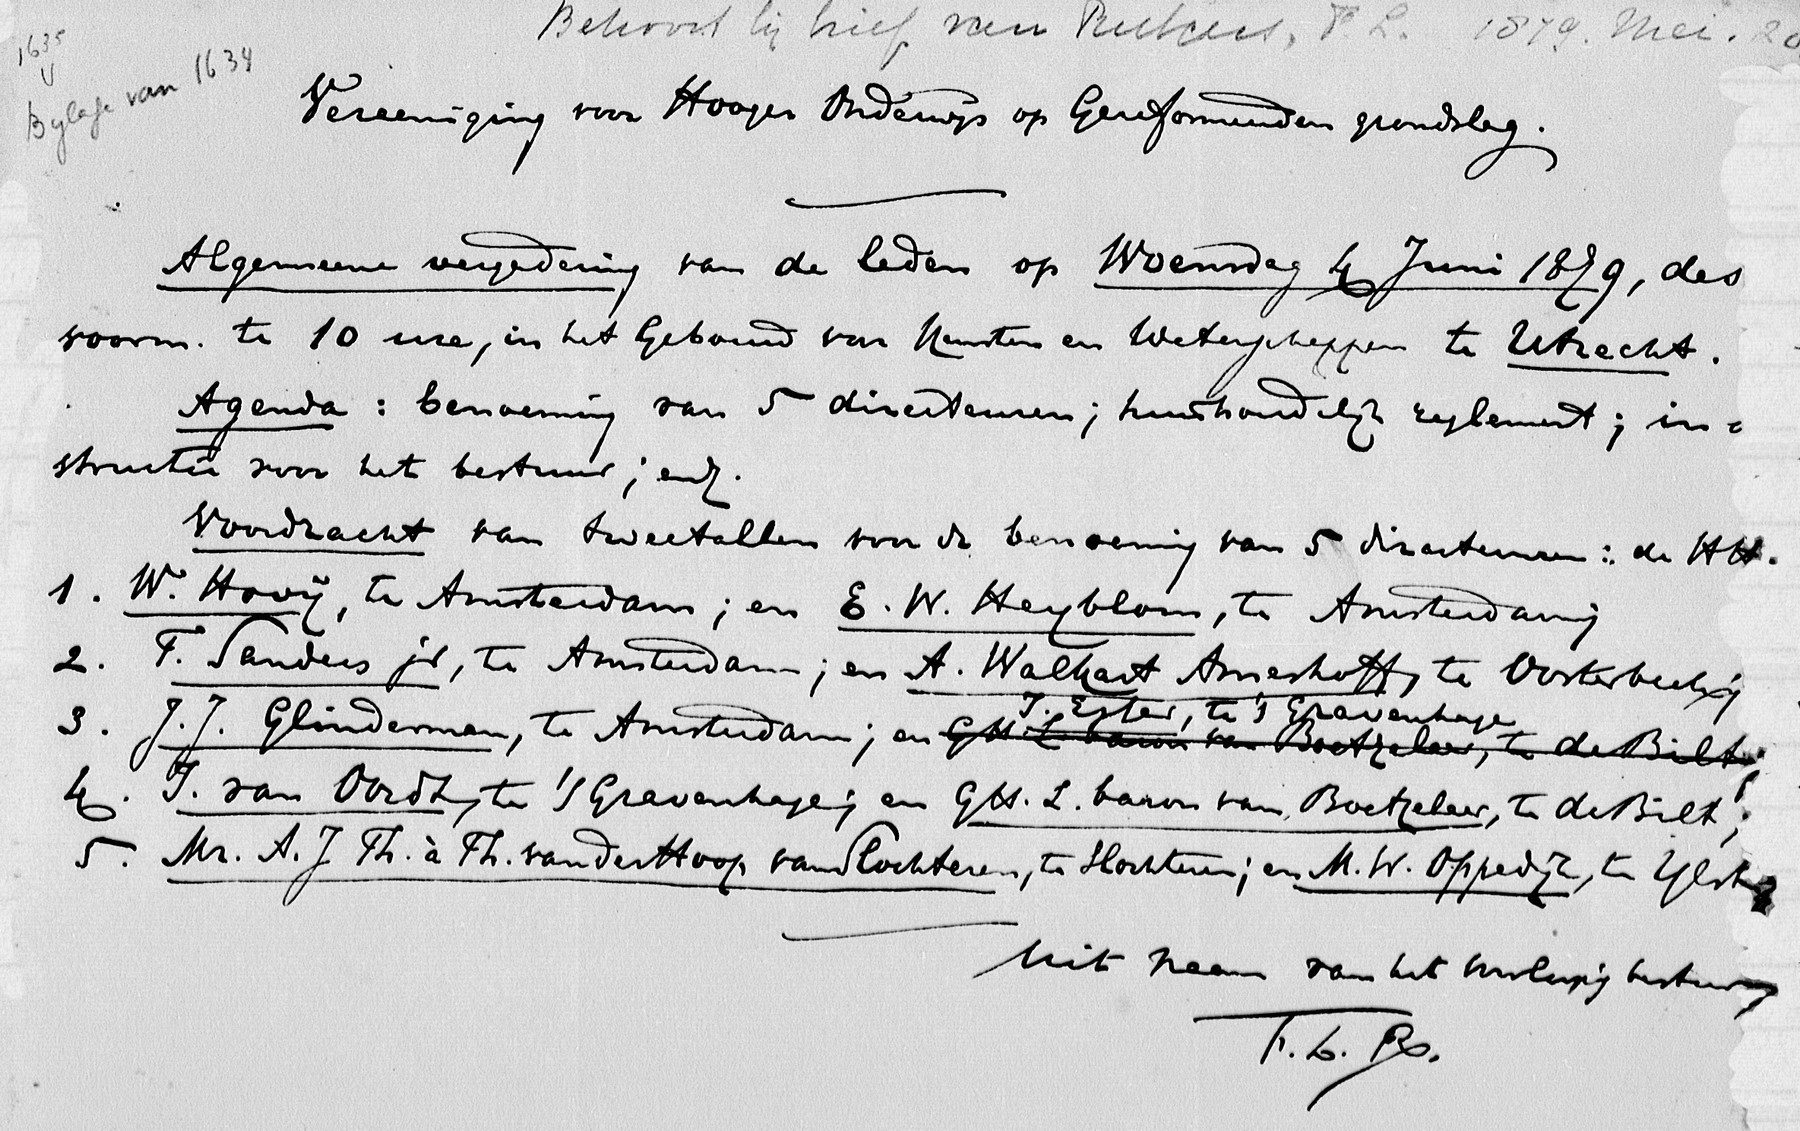 Behoort bij brief van Rutgers, F. L. 1879. Mei. 20
1635
Bylage van 1634
Vereeniging voor Hooger Onderwijs op Gereformeerden grondslag.
Algemeene vergadering van de leden op Woensdag 4 Juni 1879, des
voorm. te 10 ure, in het Gebouw van Kunsten en Wetenschappen te Utrecht.
Agenda: benoeming van 5 directeuren; huishoudelijk reglement; in=
structie voor het bestuur; enz.
Voordracht van tweetallen voor de benoeming van 5 directeuren: de HH.
1. W. Hovij, te Amsterdam; en E. W. Heyblom, te Amsterdam;
2. F. Sanders jr, te Amsterdam; en A. Walkart Ameshoff, te Oosterbeek;
J. Esser, te 's Gravenhage
3. J. J. Glinderman, te Amsterdam; en G.H. L. baron van Boetzelaer, te de Bilt;
4. J. van Oordt, te 's Gravenhage; en G.H. L. baron van Boetzelaer, te de Bilt;
5. Mr. A. J. Th. à Th. van der Hoop van Slochteren, te Slochteren; en M. W. Oppedijk, te Ylst.
Uit naam van het voorloopig bestuur,
F. L. R.